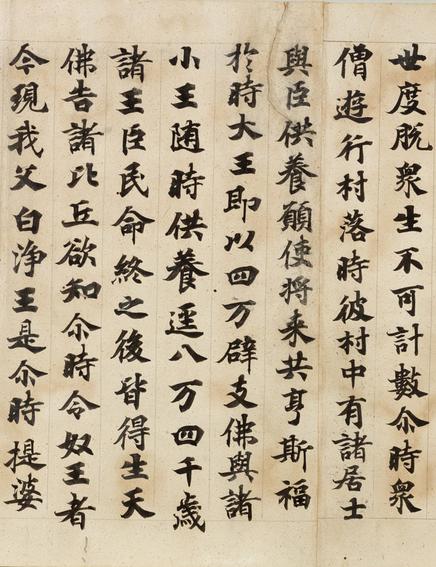 世度脱衆生不可計數尒時衆
僧遊行村落時彼村中有諸居士
與臣供養願使将来共享斯福
於時大王即以四万辟支佛與諸
小王随時供養逕八万四千歳
諸王臣民命終之後皆得生天
佛告諸比丘欲知尒時令奴王者
今現我父白浄王是尒時提婆